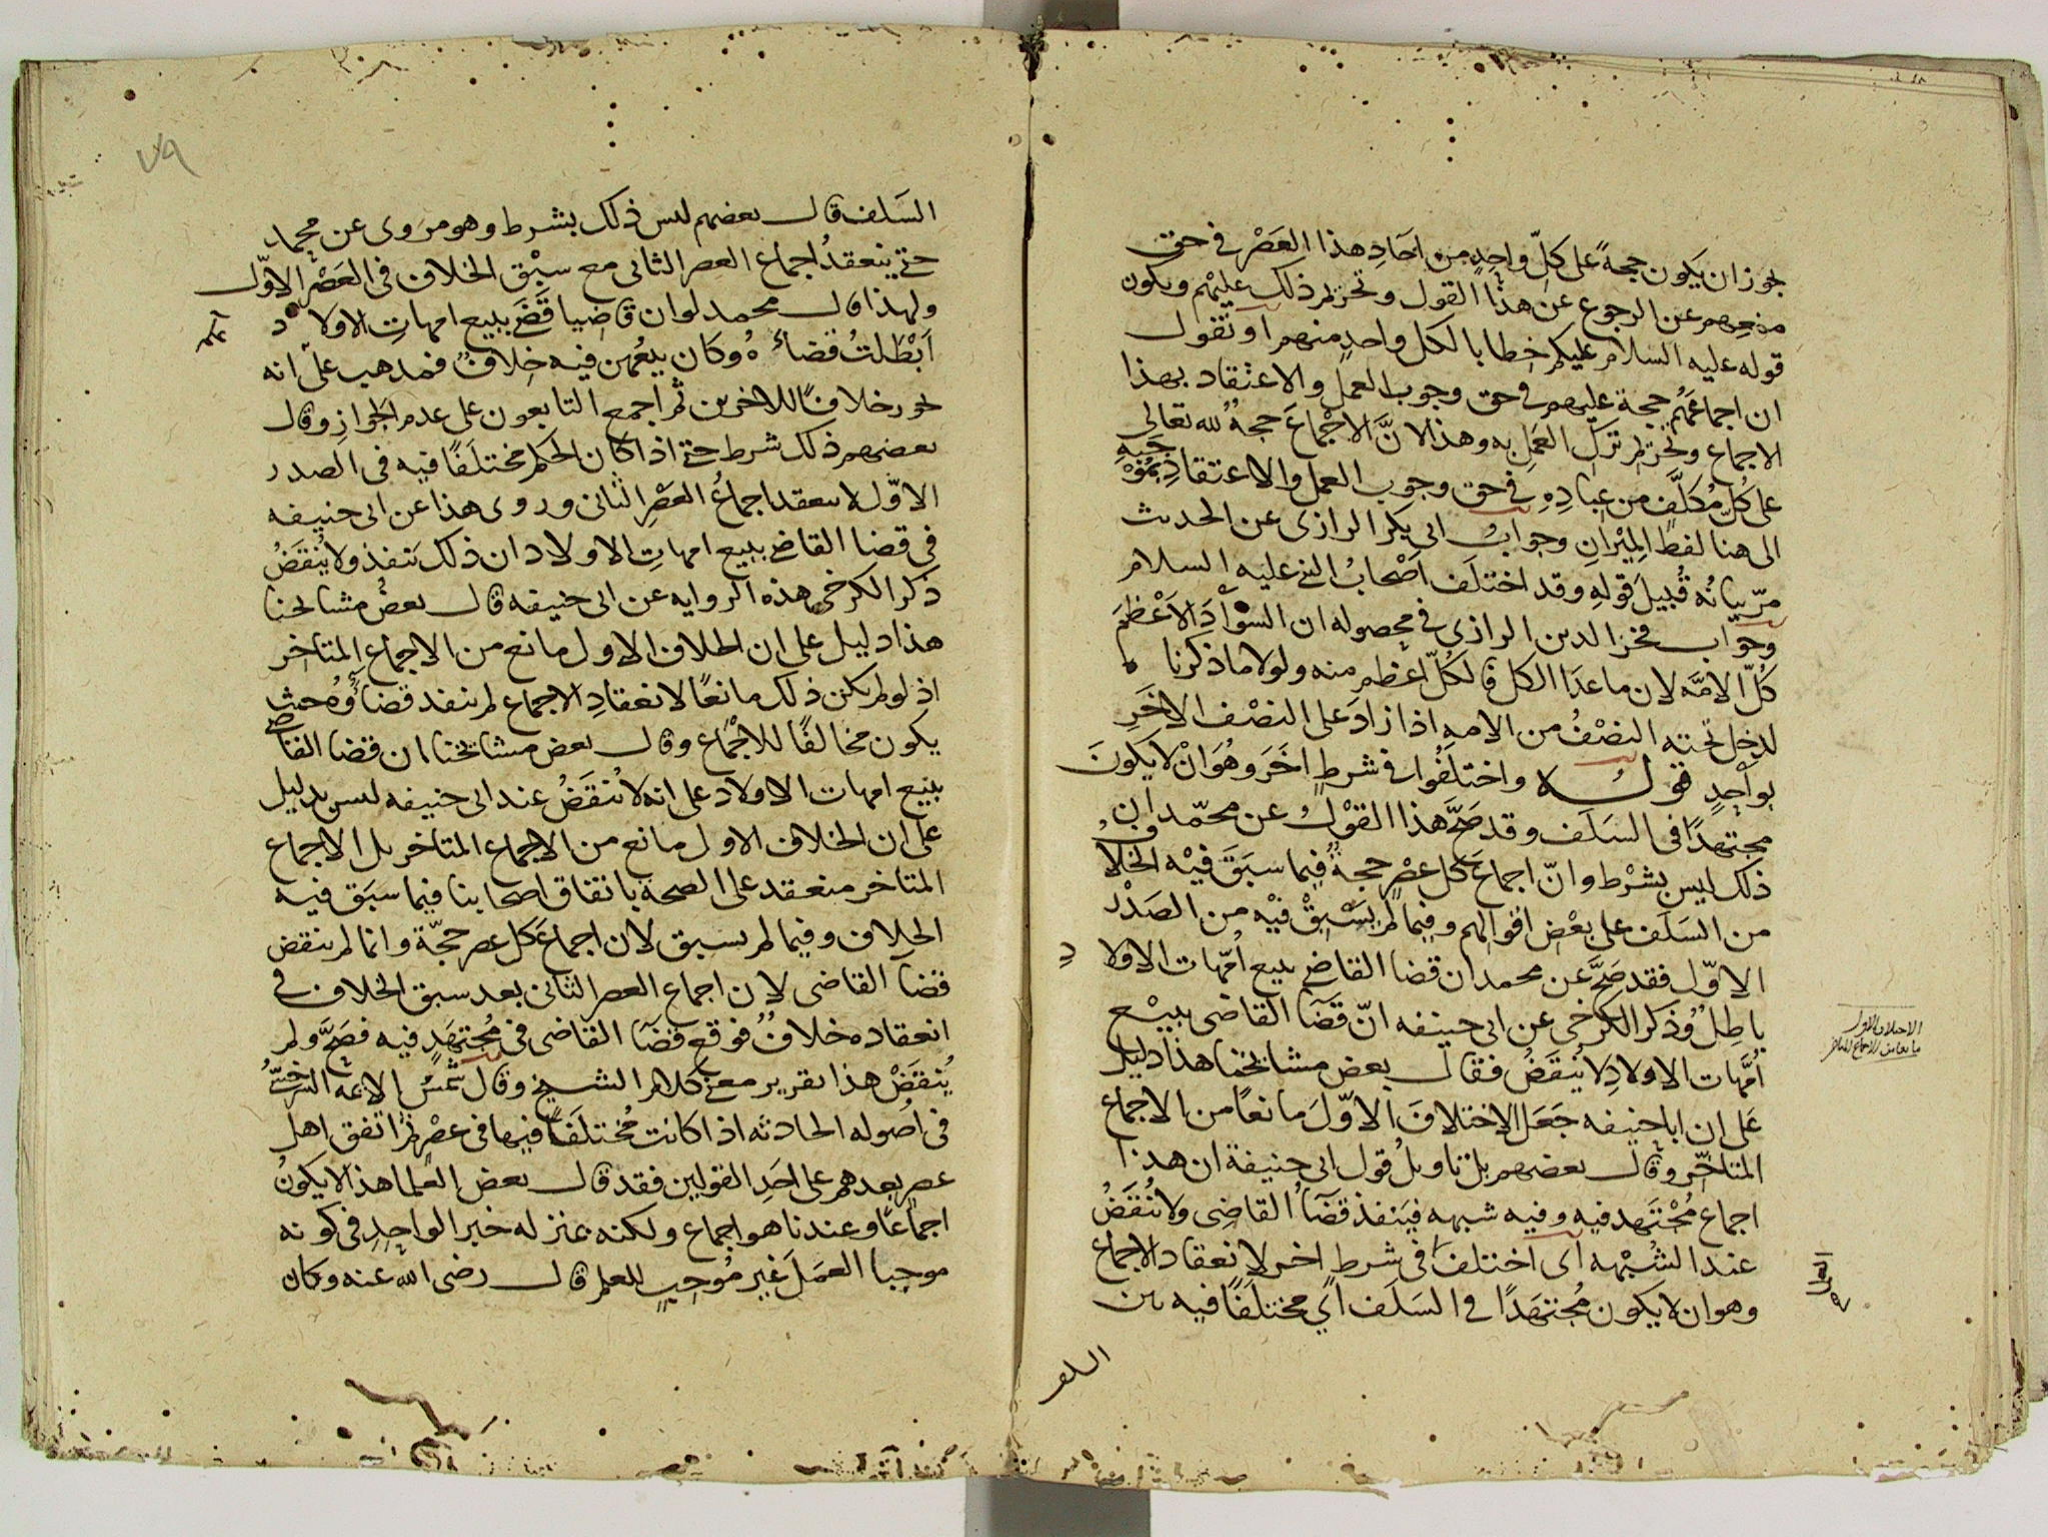 لجوز ان يكون حجةً على كلِّ واحدٍ من احَادِ هذا العَصْر في حق
منعهم عن الرجوع عن هذا القول وتحريم ذلك عليْهم ويكون
قوله عليه السلام عليكم خطابا لكل واحد منهم او نقول
ان اجماعَهُم حجة عليهم في حق وجوب العمل والاعتقاد بهذا
الاجماع وتحريم تركِ العَملِ به وهذا لانَّ الاجْماعَ حجةٌ لله تعالى
على كُلِّ مُكلَّفٍ من عِبادِهِ في حق وجوب العمل والاعتقاد بمُوْجَبِهِ
الى هنا لفظ المِيْزانِ وجوابُ ابى بكر الرازى عن الحديث
مرّ بيانُه قُبيلَ قولهِ وقد اختلَف اصْحابُ النبى عليه السلام
وجواب فخر الدين الرازى في محصوله ان السَّوادَ الاَعْظمَ
كُلّ الامَّه لان ما عدَا الكل فالكُلّ اعْظم منه ولولا ما ذكرنا
لدخل تحته النصْفُ من الامه اذا زادَ على النصْف الاخَرِ
بواحدٍ قولُه واختلَفُوا في شرطٍ اخَرَ وهُوَ انْ لا يَكونَ
مجتهدًا فى السَلَف وقد صَحَّ هذا القوْلُ عن محمّد ان
ذلك ليس بشرْط وانّ اجماعَ كل عصْرٍ حجةٌ فيما سبَقَ فيْه الخلافُ
من السَلَف على بعْض اقوالهم وفيما لم يَسْبِقْ فيْه من الصَدْر
الاوّل فقد صَحَّ عن محمد ان قضا القاضى ببيع اُمّهات الاولاد
باطلٌ وذكر الكرخى عن ابى حنيفه انّ قَضَا القاضى ببيْع
اُمَّهات الاولادِ لا يُنقَضُ فقال بعض مشايخنا هذا دليل
عَلى ان ابا حنيفه جَعَل الاختلافَ الاوّلَ مَانعًا من الاجماع
المتاخّر وقال بعضهم بل تاويلُ قول ابى حنيفة ان هذا
اجماع مُجْتَهد فيه وفيه شبهه فيَنفذ قضَاُ القاضِى ولا يُنقَضُ
عند الشُبْهه اى اختلفَ فى شرطٍ اخر لانعقاد الاجماع
وهو ان لا يكون مُجتهَدًا في السَلَف اَي مختلَفًا فيه بين
السلف
الاختلاف الاول
السَلف قال بعضهم ليس ذلك بشرط وهو مروى عن محمد
حتى ينعقدُ اجماع العصر الثانى مع سبْق الخلاف فى العَصْر الاوّل
ولهذا قال محمد لو ان قاضيا قضَى ببيع امهاتِ الاولاد
اَبْطَلتُ قضاءَهُ وكان بيعُهن فيه خلافٌ فمذهب علىّ انه
يجوز خلافًا للاخرين ثم اجمع التابعون على عدم الجوازِ وقال
بعضهم ذلك شرط حتى اذا كان الحكم مختلَفًا فيه فى الصدر
الاوّل لا ينعقد اجماعُ العَصْرِ الثانى وروى هذا عن ابى حنيفه
فى قضا القاضى ببيع امهاتِ الاولاد ان ذلك يَنفذ ولا يُنقَضُ
ذكر الكرخى هذه الروايه عن ابى حنيفه قال بعضُ مشايخنا
هذا دليل على ان الخلاف الاول مانع من الاجماع المتأخر
اذ لو لم يكن ذلك مانعًا لانعقادِ الاجماع لم ينفذ قضاؤُه حيث
يكون مخالفًا للاجْماع وقال بعض مشايخنا ان قضا القاضى
ببيع امهات الاولاد على انه لا يُنقَضُ عند ابى حنيفه ليس بدليل
على ان الخلاف الاول مانع من الاجماع المتاخر بل الاجماع
المتاخر منعقد على الصحة باتفاق اصحابنا فيما سبَق فيه
الخلاف وفيما لم يسبق لان اجماعَ كل عصر حجّة وانما لم ينقض
قضآ القاضى لان اجماع العصر الثانى بعد سبق الخلاف في
انعقاده خلافٌ فوقع قضَآ القاضى فى مُجتهَدٍ فيه فصَحَّ ولم
يُنقَضْ هذا تقرير معنى كلام الشيخ وقال شمْسُ الايمه السَرَخسىُّ
فى اُصُوله الحادثه اذا كانت مُختلَفًا فيها فى عصْرٍ ثم اتفق اهل
عصر بعدهم على احَدِ القولين فقد قال بعض العلما هذا لا يكونُ
اجماعًا وعندنا هو اجماع ولكنه بمنزله خبر الواحِدِ فى كونه
موجبا العمَلَ غيرَ مُوجبٍ للعلم قال رضى الله عنه وكان
٧٩